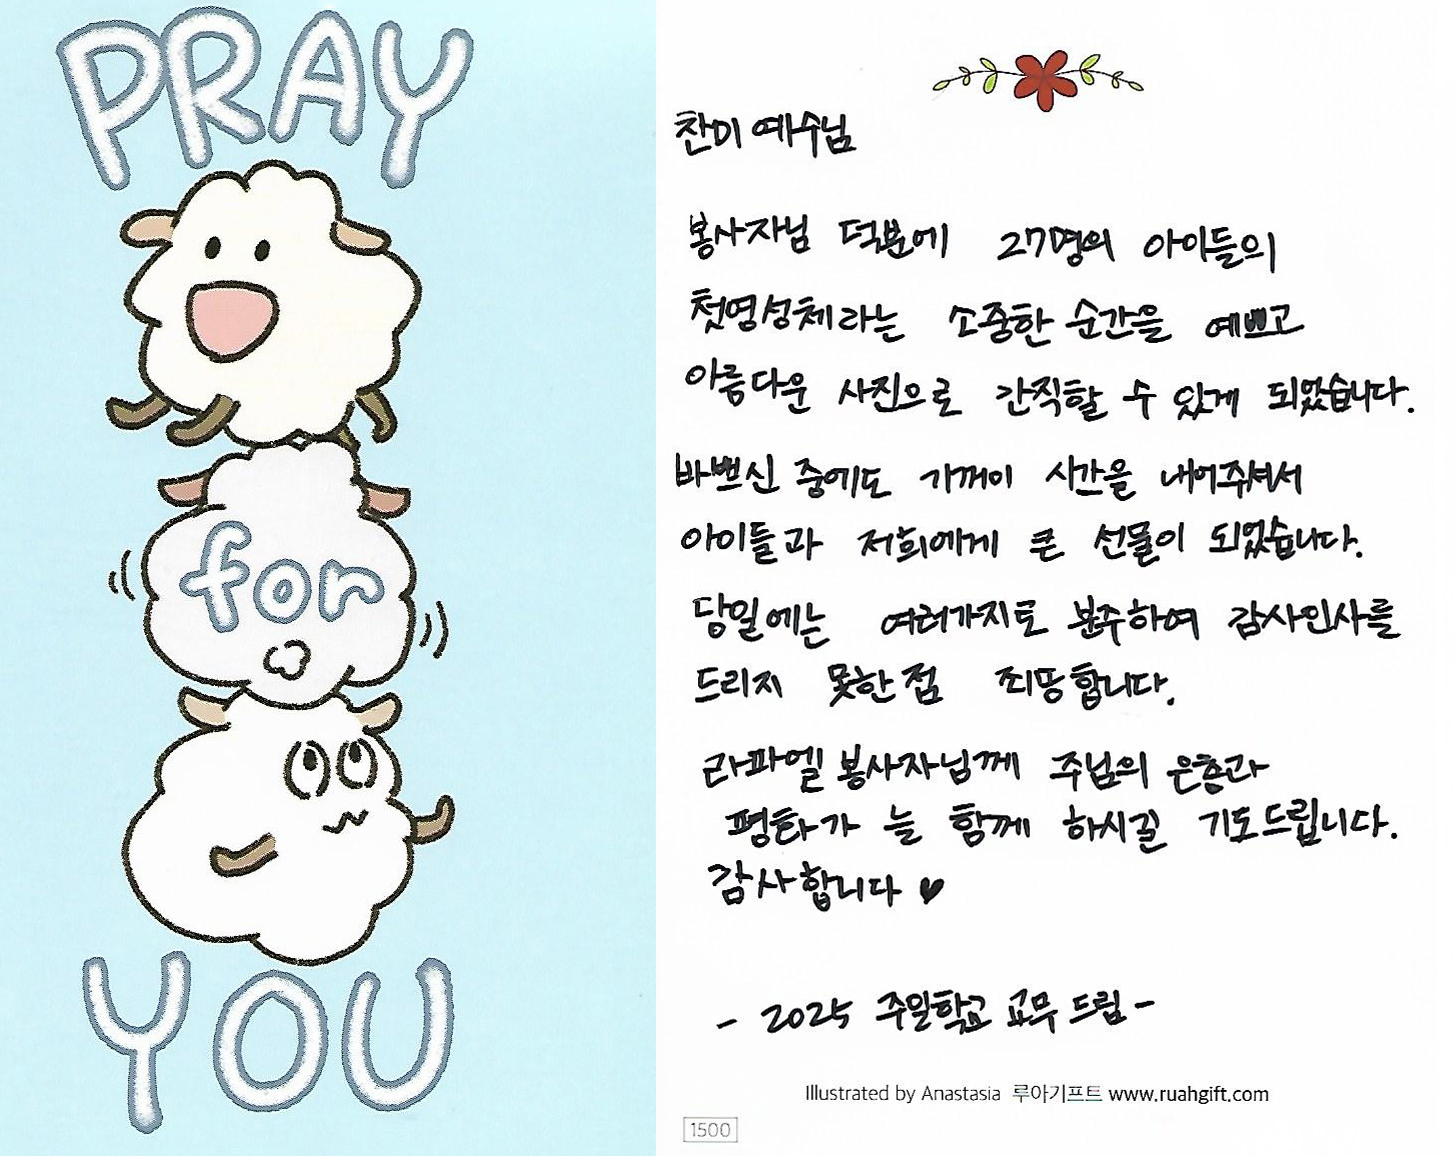 PRAY
for
YOU
찬미 예수님
봉사자님 덕분에 27명의 아이들의
첫영성체라는 소중한 순간을 예쁘고
아름다운 사진으로 간직할 수 있게 되었습니다.
바쁘신 중에도 기꺼이 시간을 내어주셔서
아이들과 저희에게 큰 선물이 되었습니다.
당일에는 여러가지로 분주하여 감사인사를
드리지 못한점 죄송합니다.
라파엘 봉사자님께 주님의 은총과
평화가 늘 함께 하시길 기도드립니다.
감사합니다 ♥
- 2025 주일학교 교무 드림 -
Illustrated by Anastasia 루아기프트 www.ruahgift.com
1500